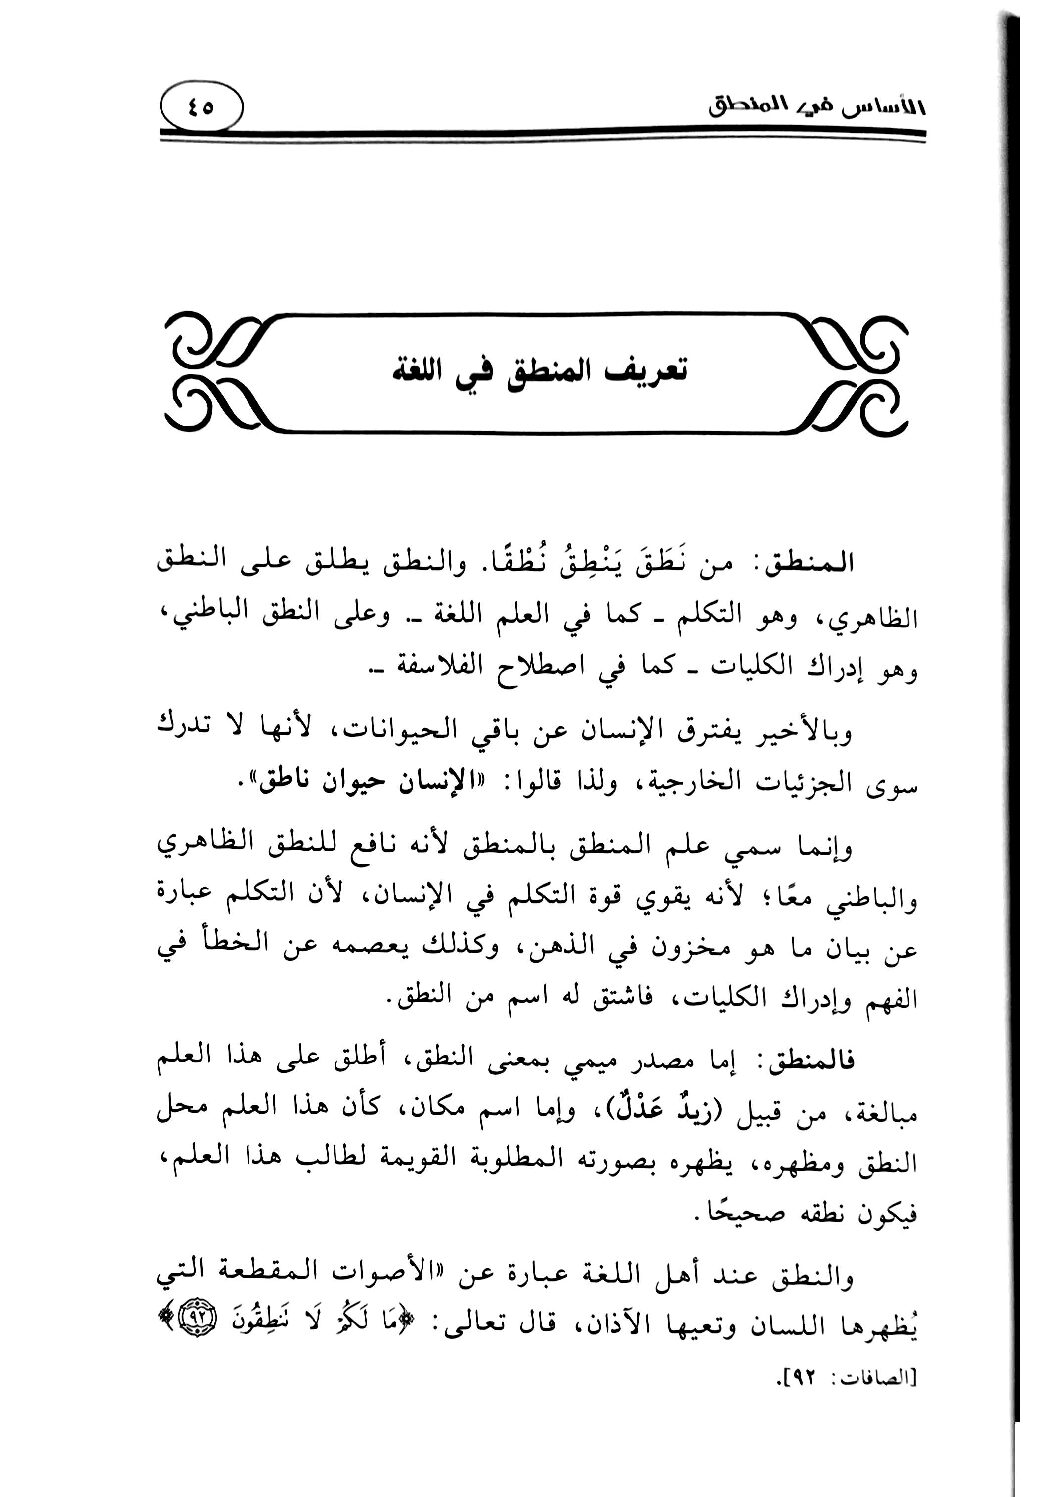 الأساس في المنطق
٤٥
تعريف المنطق في اللغة
المنطق: من نَطَقَ يَنْطِقُ نُطْقًا. والنطق يطلق على النطق
الظاهري، وهو التكلم ـ كما في العلم اللغة ـ. وعلى النطق الباطني،
وهو إدراك الكليات ـ كما في اصطلاح الفلاسفة ـ.
وبالأخير يفترق الإنسان عن باقي الحيوانات، لأنها لا تدرك
سوى الجزئيات الخارجية، ولذا قالوا: «الإنسان حيوان ناطق».
وإنما سمي علم المنطق بالمنطق لأنه نافع للنطق الظاهري
والباطني معًا؛ لأنه يقوي قوة التكلم في الإنسان، لأن التكلم عبارة
عن بيان ما هو مخزون في الذهن، وكذلك يعصمه عن الخطأ في
الفهم وإدراك الكليات، فاشتق له اسم من النطق.
فالمنطق: إما مصدر ميمي بمعنى النطق، أطلق على هذا العلم
مبالغة، من قبيل (زيدٌ عَدْلٌ)، وإما اسم مكان، كأن هذا العلم محل
النطق ومظهره، يظهره بصورته المطلوبة القويمة لطالب هذا العلم،
فيكون نطقه صحيحًا.
والنطق عند أهل اللغة عبارة عن «الأصوات المقطعة التي
يُظهرها اللسان وتعيها الآذان، قال تعالى: ﴿مَا لَكُمْ لَا نَنطِقُونَ ٩٢﴾
[الصافات: ٩٢].